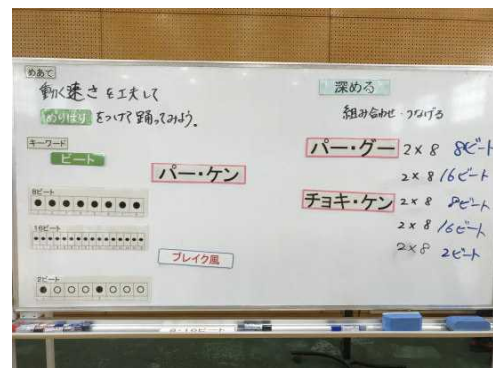 めあて
動く速さを工夫して
めりはりをつけて踊ってみよう。
キーワード
ビート
パー・ケン
8ビート
16ビート
ブレイク風
2ビート
深める
組み合わせ・つなげる
パー・グー 2×8 8ビート
2×8 16ビート
チョキ・ケン 2×8 8ビート
2×8 16ビート
2×8 2ビート
8・16ビート